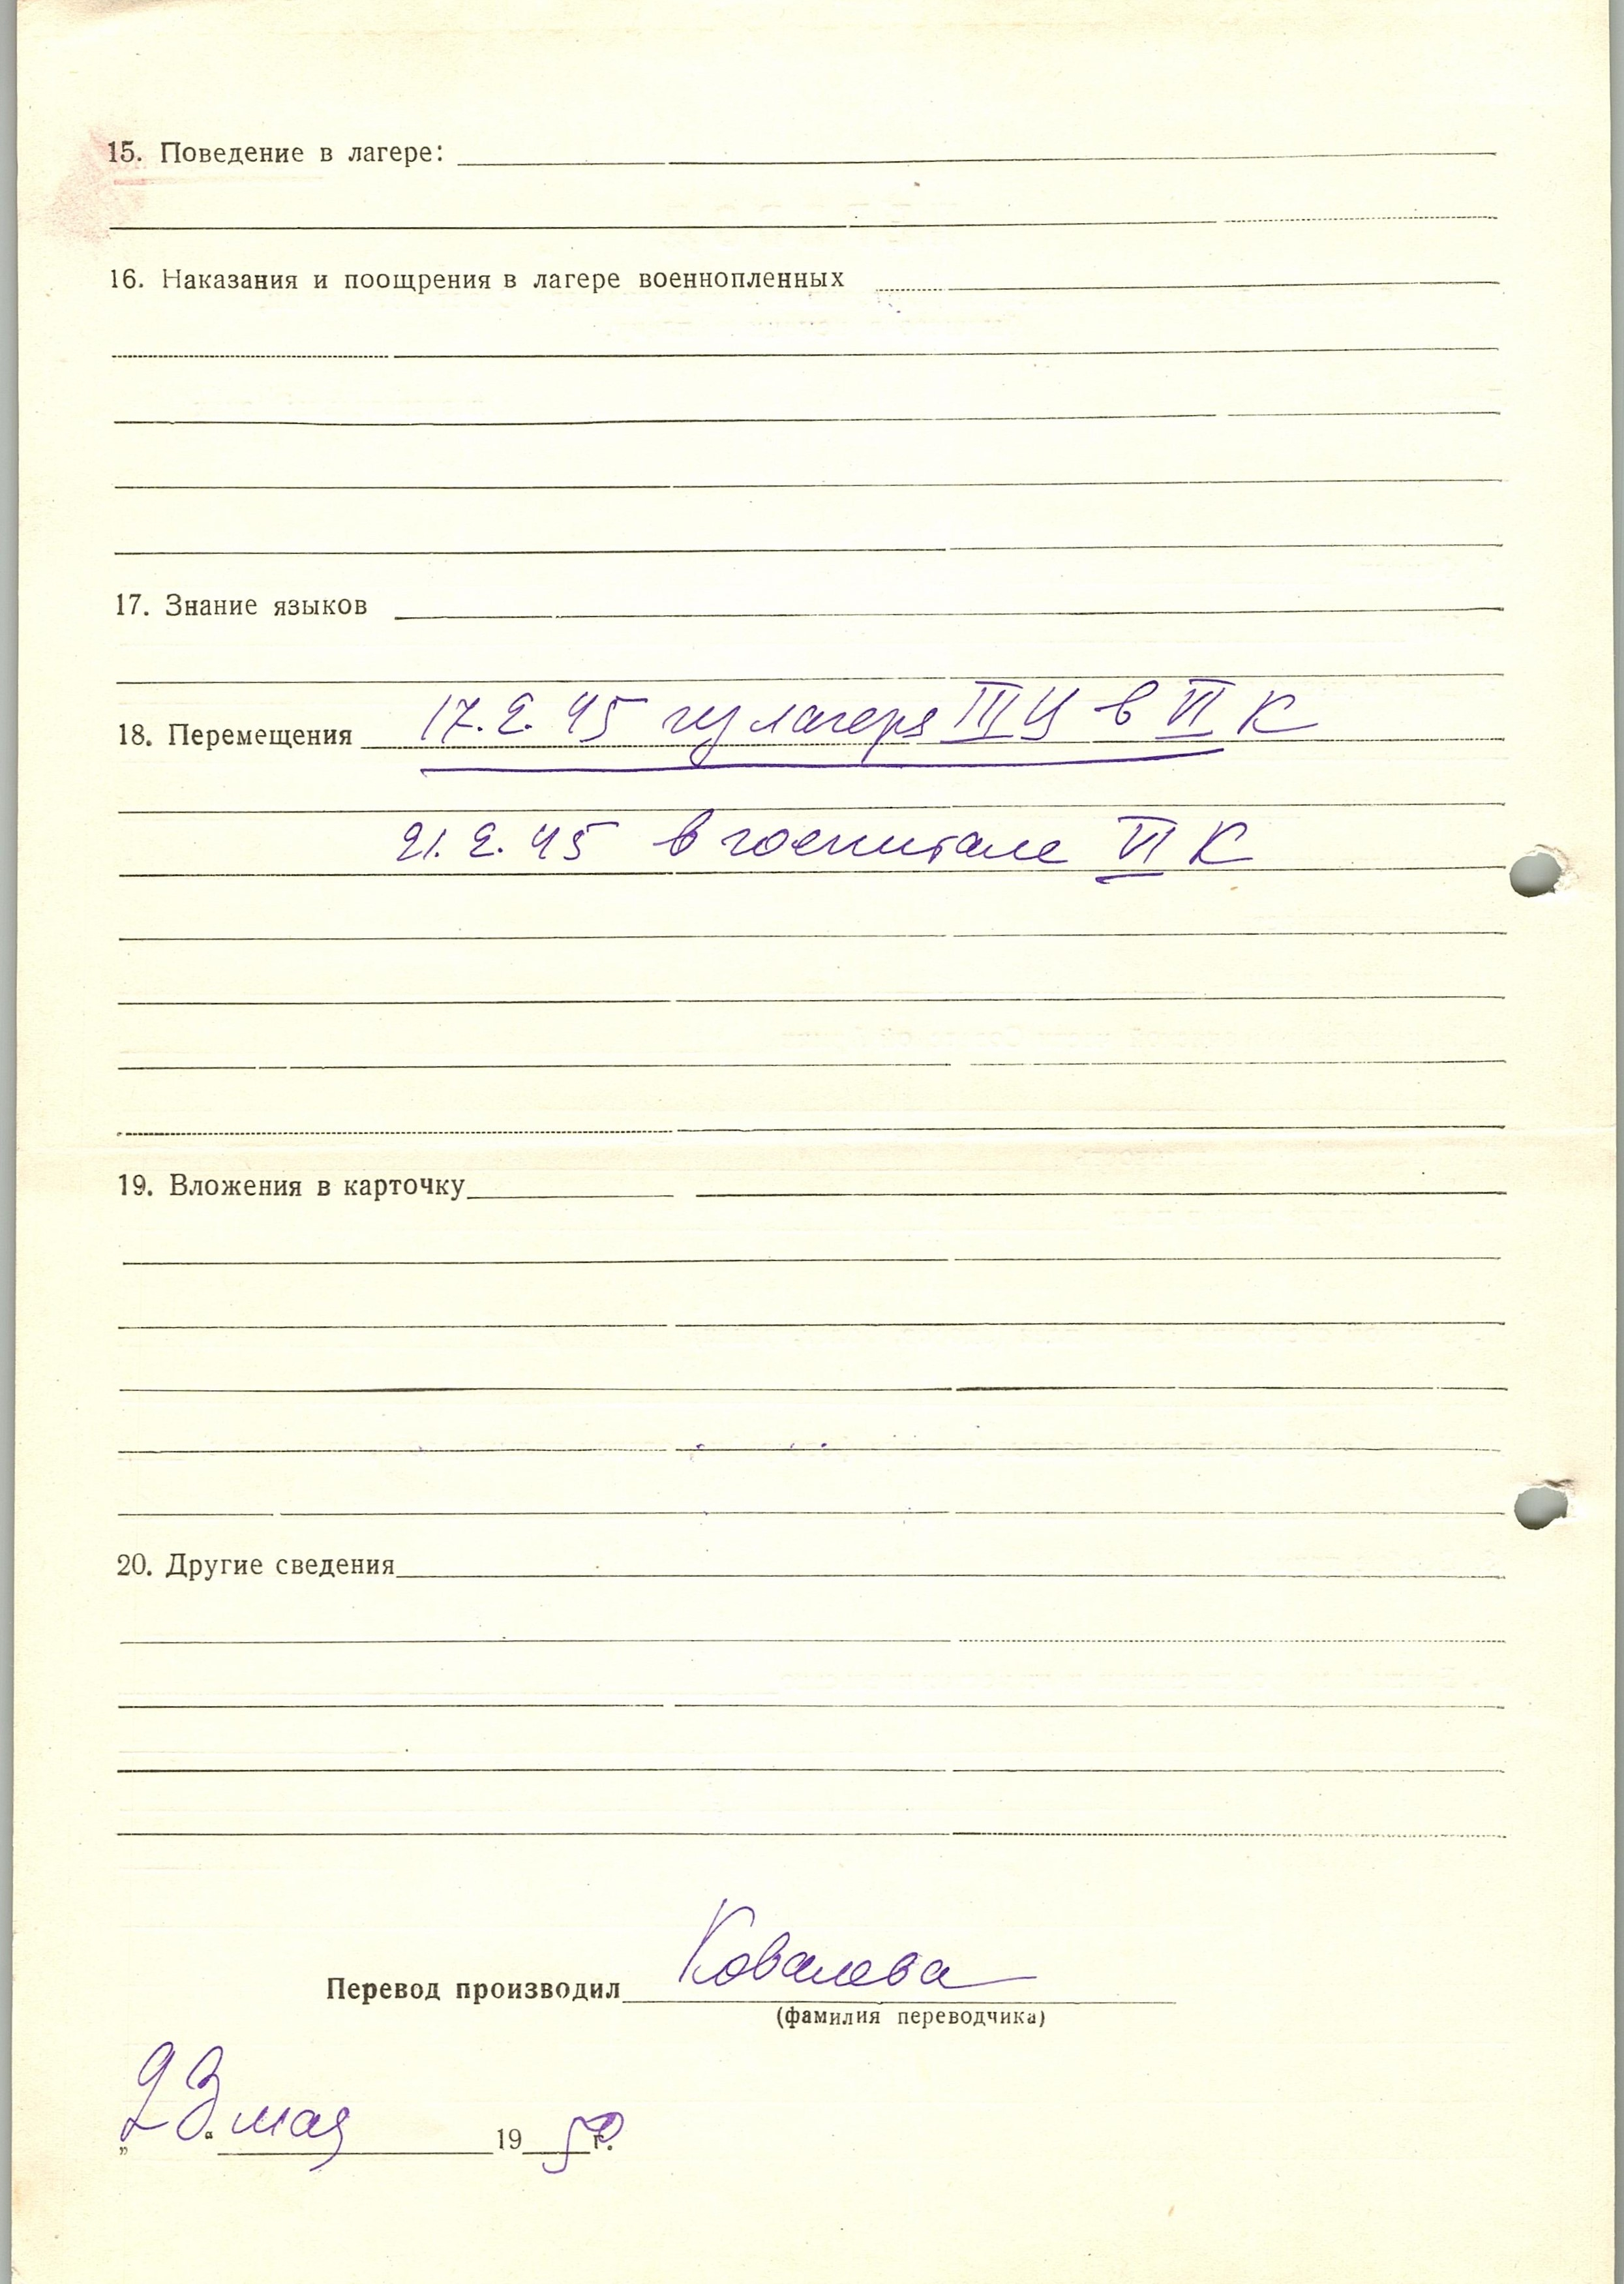 15. Поведение в лагере:
16. Наказания и поощрения в лагере военнопленных
17. Знание языков
18. Перемещения 17.2.45 из лагеря III Ц в VI К
21.2.45 в госпитале VI К
19. Вложения в карточку
20. Другие сведения
Перевод производил Ковалева
(фамилия переводчика)
„23“ мая 1950 г.